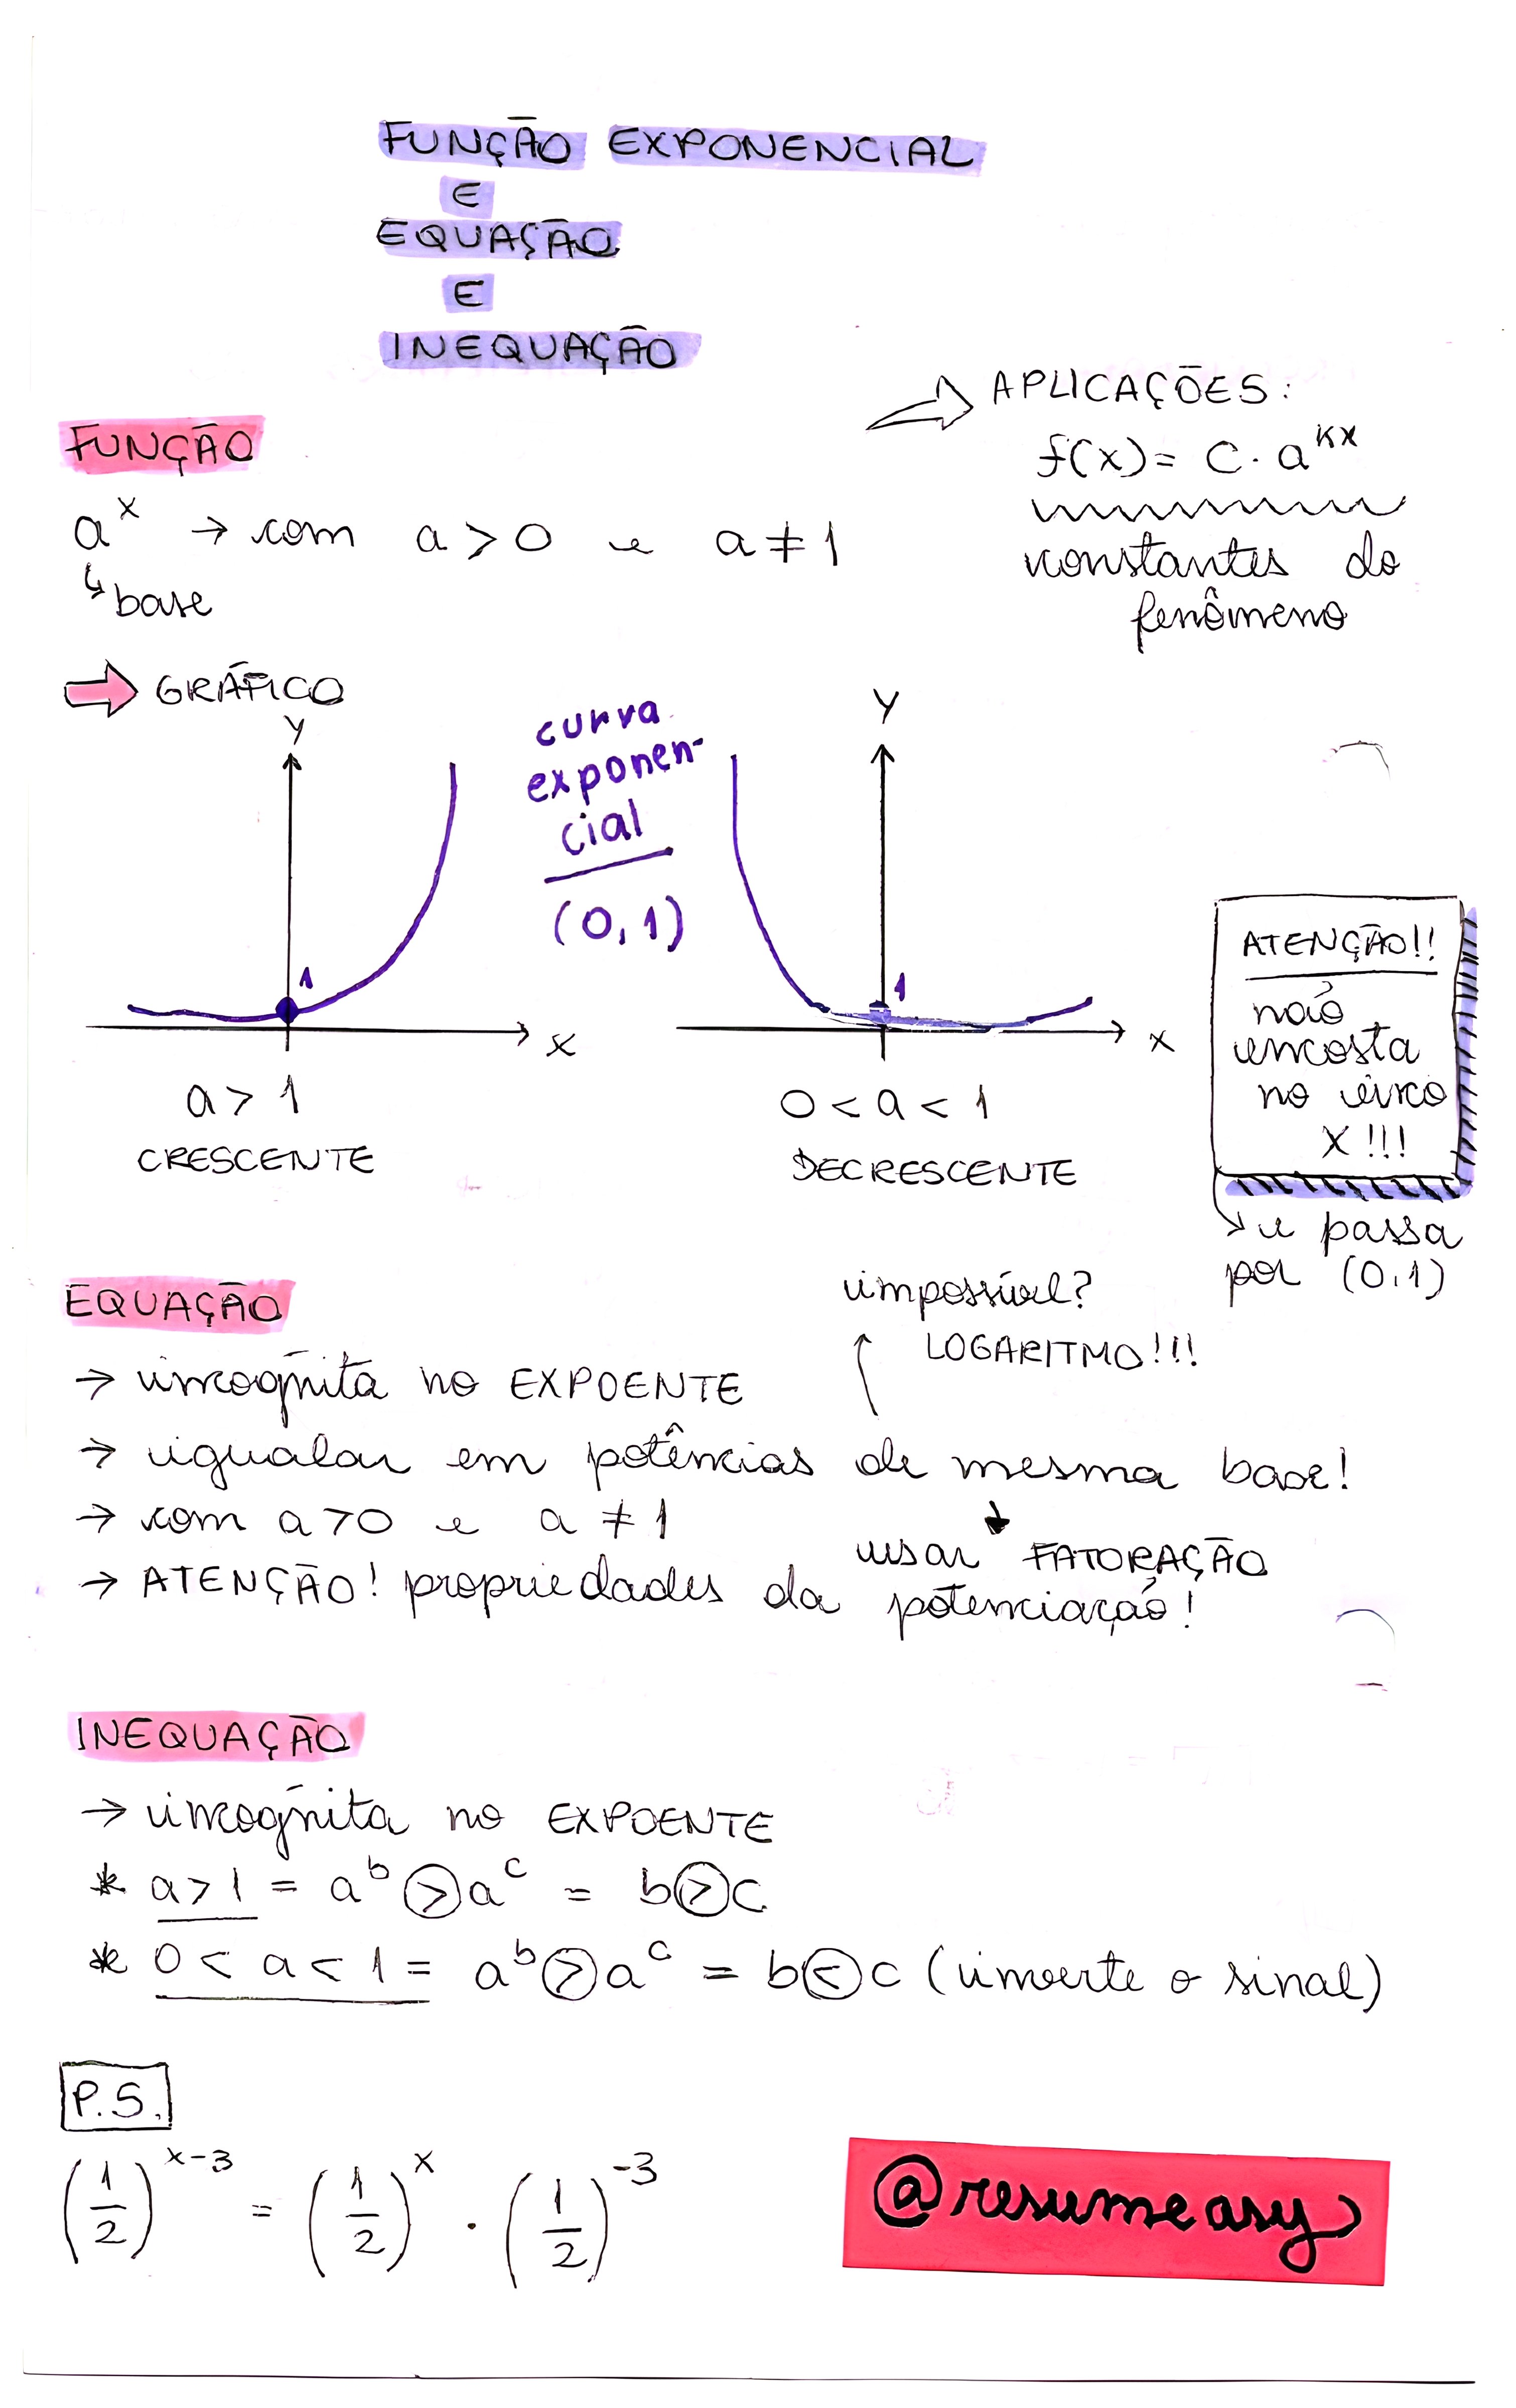 FUNÇÃO EXPONENCIAL
E
EQUAÇÃO
E
INEQUAÇÃO
APLICAÇÕES:
f(x) = C · a^kx
constantes do
fenômeno
FUNÇÃO
a^x → com a > 0 e a ≠ 1
↳ base
⇒ GRÁFICO
y
1
x
a > 1
CRESCENTE
curva
exponen-
cial
(0,1)
y
1
x
0 < a < 1
DECRESCENTE
ATENÇÃO!!
não
encosta
no eixo
X!!!
↳ e passa
por (0,1)
EQUAÇÃO
→ incógnita no EXPOENTE
impossível?
LOGARITMO!!!
→ igualar em potências de mesma base!
→ com a > 0 e a ≠ 1
usar FATORAÇÃO
→ ATENÇÃO! propriedades da potenciação!
INEQUAÇÃO
→ incógnita no EXPOENTE
* a > 1 = a^b > a^c = b > c
* 0 < a < 1 = a^b > a^c = b < c (inverte o sinal)
P.S.
(1/2)^x-3 = (1/2)^x · (1/2)^-3
@resumeasy